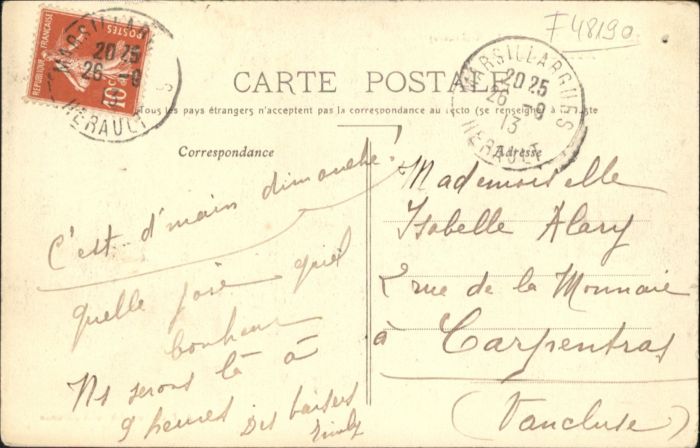 F 48190
MARSILLARGUES
20 25
26 -9
HERAULT
RÉPUBLIQUE FRANÇAISE
POSTES
10
MARSILLARGUES
20 25
26 -9
13
HERAULT
CARTE POSTALE
Tous les pays étrangers n'acceptent pas la correspondance au recto (se renseigner à la poste
Correspondance
C'est d'main dimanche!
quelle joie quel
bonheur
Ns serons là à
9 heures Des baisers
Adresse
Mademoiselle
Isabelle Alary
2 rue de la Monnaie
à Carpentras
(Vaucluse)